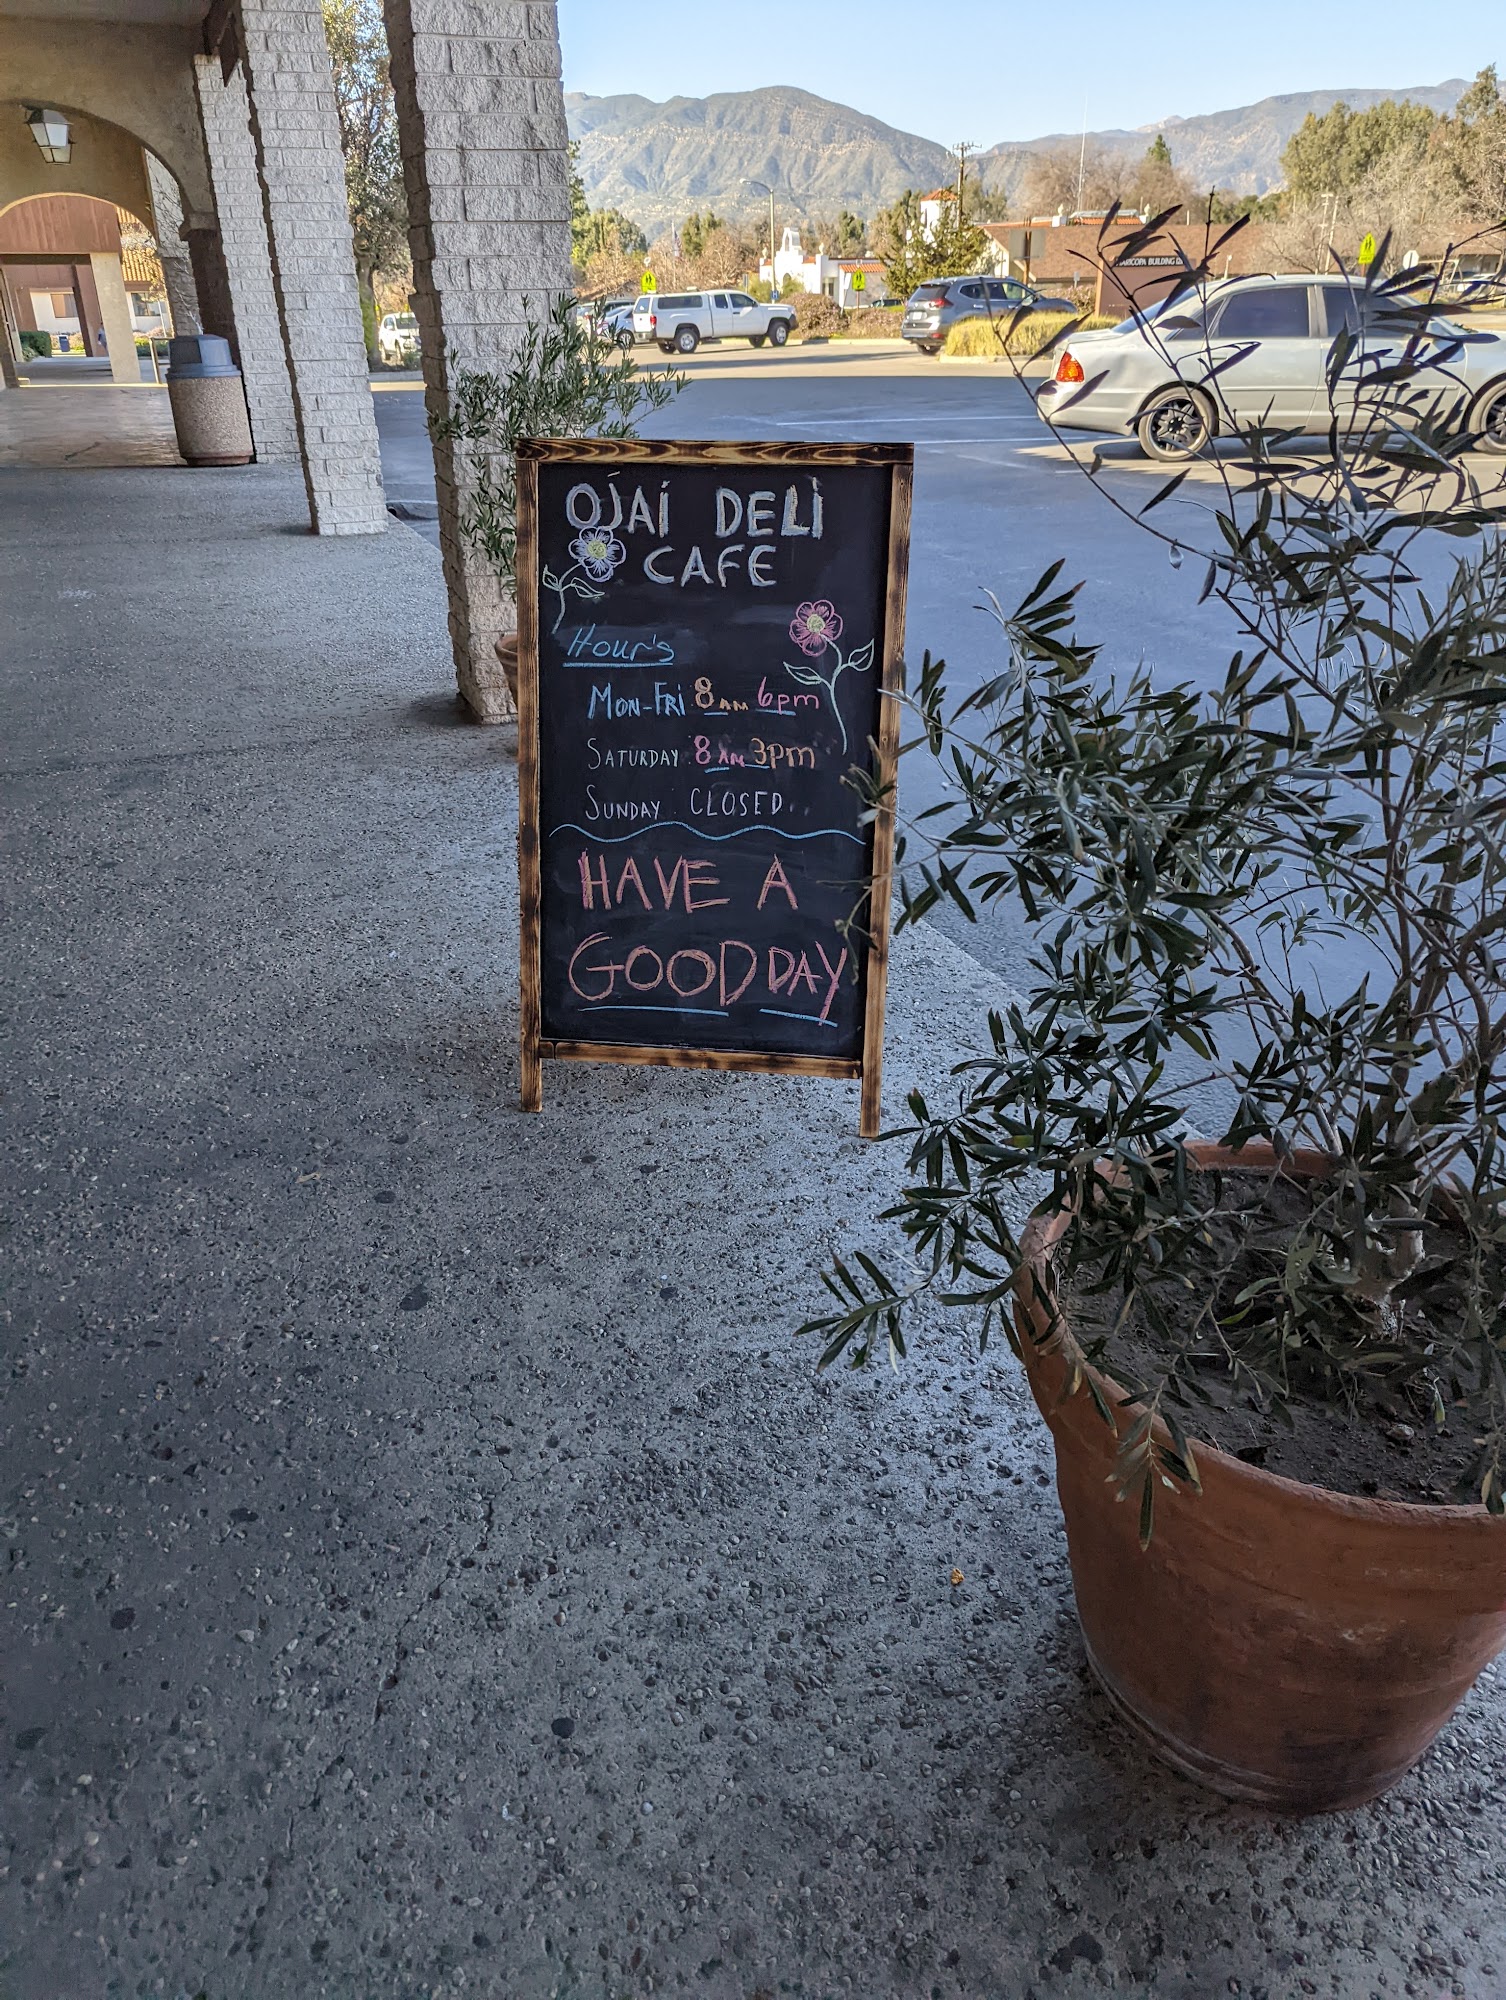 OJAI DELI
CAFE
Hour's
MON-FRI 8AM 6pm
SATURDAY 8AM 3pm
SUNDAY CLOSED
HAVE A
GOOD DAY
BUILDING